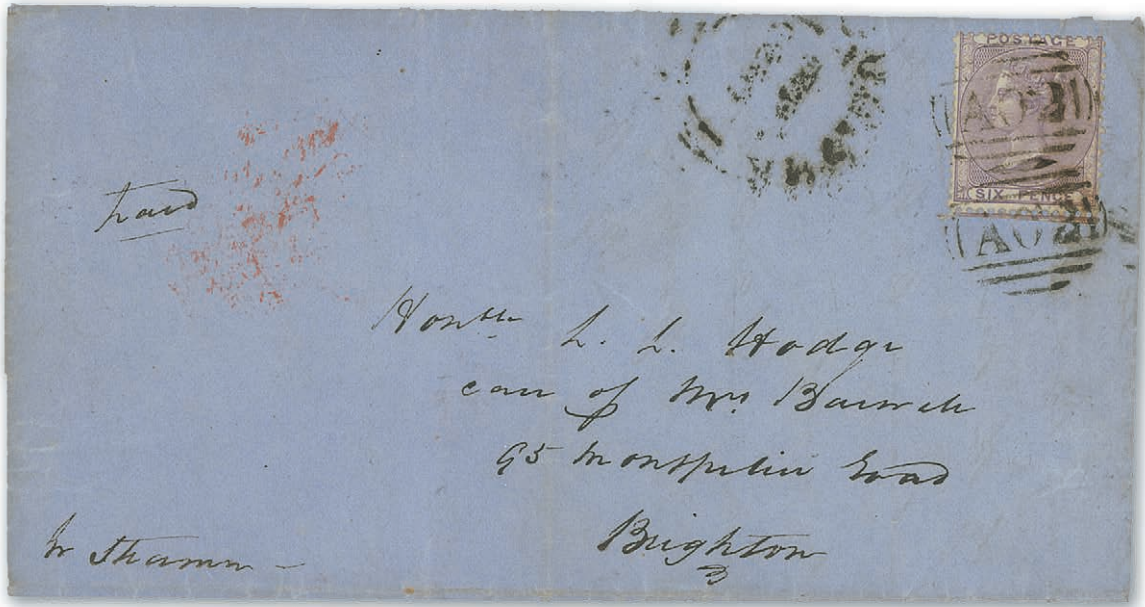 POSTAGE
A02
SIX PENCE
A02
Paid
Honble L. L. Hodge
care of Mrs Barwell
95 Montpelier Road
Brighton
Pr Steamer –